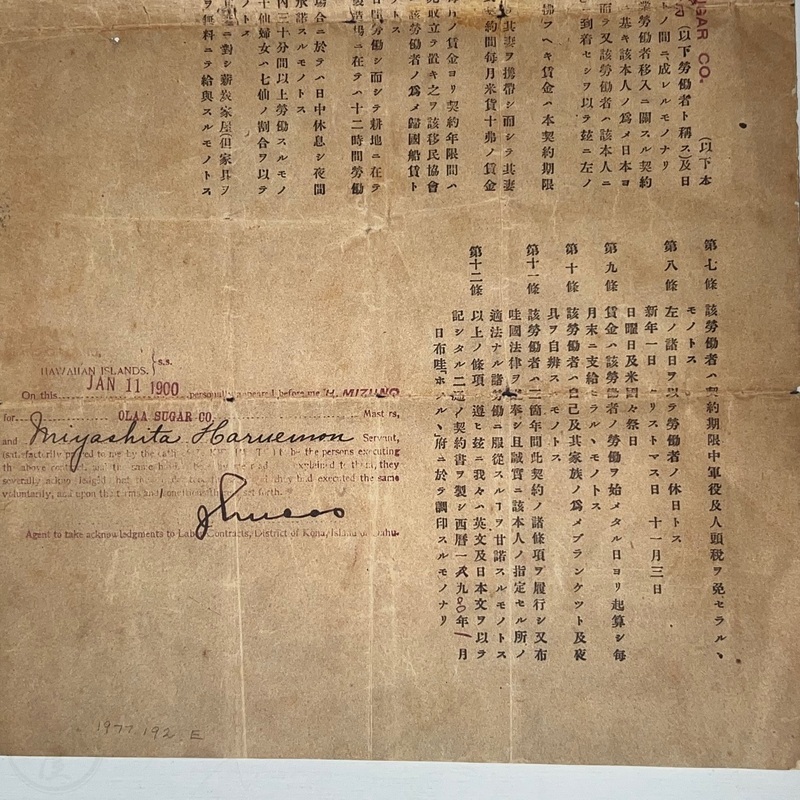 GAR CO.
(以下本
(以下勞働者ト稱ス)及日
ノ間ニ成レルモノナリ
業勞働者移入ニ關スル契約
基キ該本人ノ爲メ日本ヨ
而ラ又該勞働者ハ該本人ニ
ニ到着セシヲ以ラ玆ニ左ノ
拂フヘキ賃金ハ本契約期限
其妻ヲ携帶シ而シラ其妻
契約間每月米貨十弗ノ賃金
ノ賃金ヨリ契約年限間ハ
取立ラ置キ之ヲ該移民協會
該勞働者ノ爲メ歸國船賃ト
トス
日間勞働シ而シラ耕地ニ在ラ
製造場ニ在ラハ十二時間勞働
場合ニ於ラハ日中休息シ夜間
承諾スルモノトス
內三十分間以上勞働スルモノ
十仙婦女ハ七仙ノ割合ヲ以ラ
ノトス
ニ對シ薪炭家屋(但家具ヲ
ヲ無料ニラ給與スルモノトス
第七條 該勞働者ハ契約期限中軍役及人頭稅ヲ免セラルヽ
モノトス
第八條 左ノ諸日ヲ以ラ勞働者ノ休日トス
新年一日 クリストマス日 十一月三日
日曜日及米國々祭日
第九條 賃金ハ該勞働者ノ勞働ヲ始メタル日ヨリ起算シ每
月末ニ支給セラルヽモノトス
第十條 該勞働者ハ自己及其家族ノ爲メブランケツト及夜
具ヲ自辨スルモノトス
第十一條 該勞働者ハ二箇年間此契約ノ諸條項ヲ履行シ又布
哇國法律ヲ遵奉シ且誠實ニ該本人ノ指定セル所ノ
適法ナル諸勞働ニ服從スルヿヲ甘諾スルモノトス
第十二條 以上ノ條項ヲ遵ヒ玆ニ我々ハ英文及日本文ヲ以ラ
記シタル二通ノ契約書ヲ製シ西曆一九〇〇年1月
日布哇「ホノルヽ」府ニ於ラ調印スルモノナリ
HAWAIIAN ISLANDS. } s.s.
On this JAN 11 1900 personally appeared before me H. MIZUNO
for OLAA SUGAR CO. Masters,
and Miyashita Haruemon Servant,
satisfactorily proved to me by the oath of to be the persons executing
the above contract, and the same explained to them, they
severally acknowledged that they had executed the same
voluntarily, and upon the terms and conditions set forth.
Agent to take acknowledgments to Labor Contracts, District of Kona, Island of Oahu.
1977.192.E